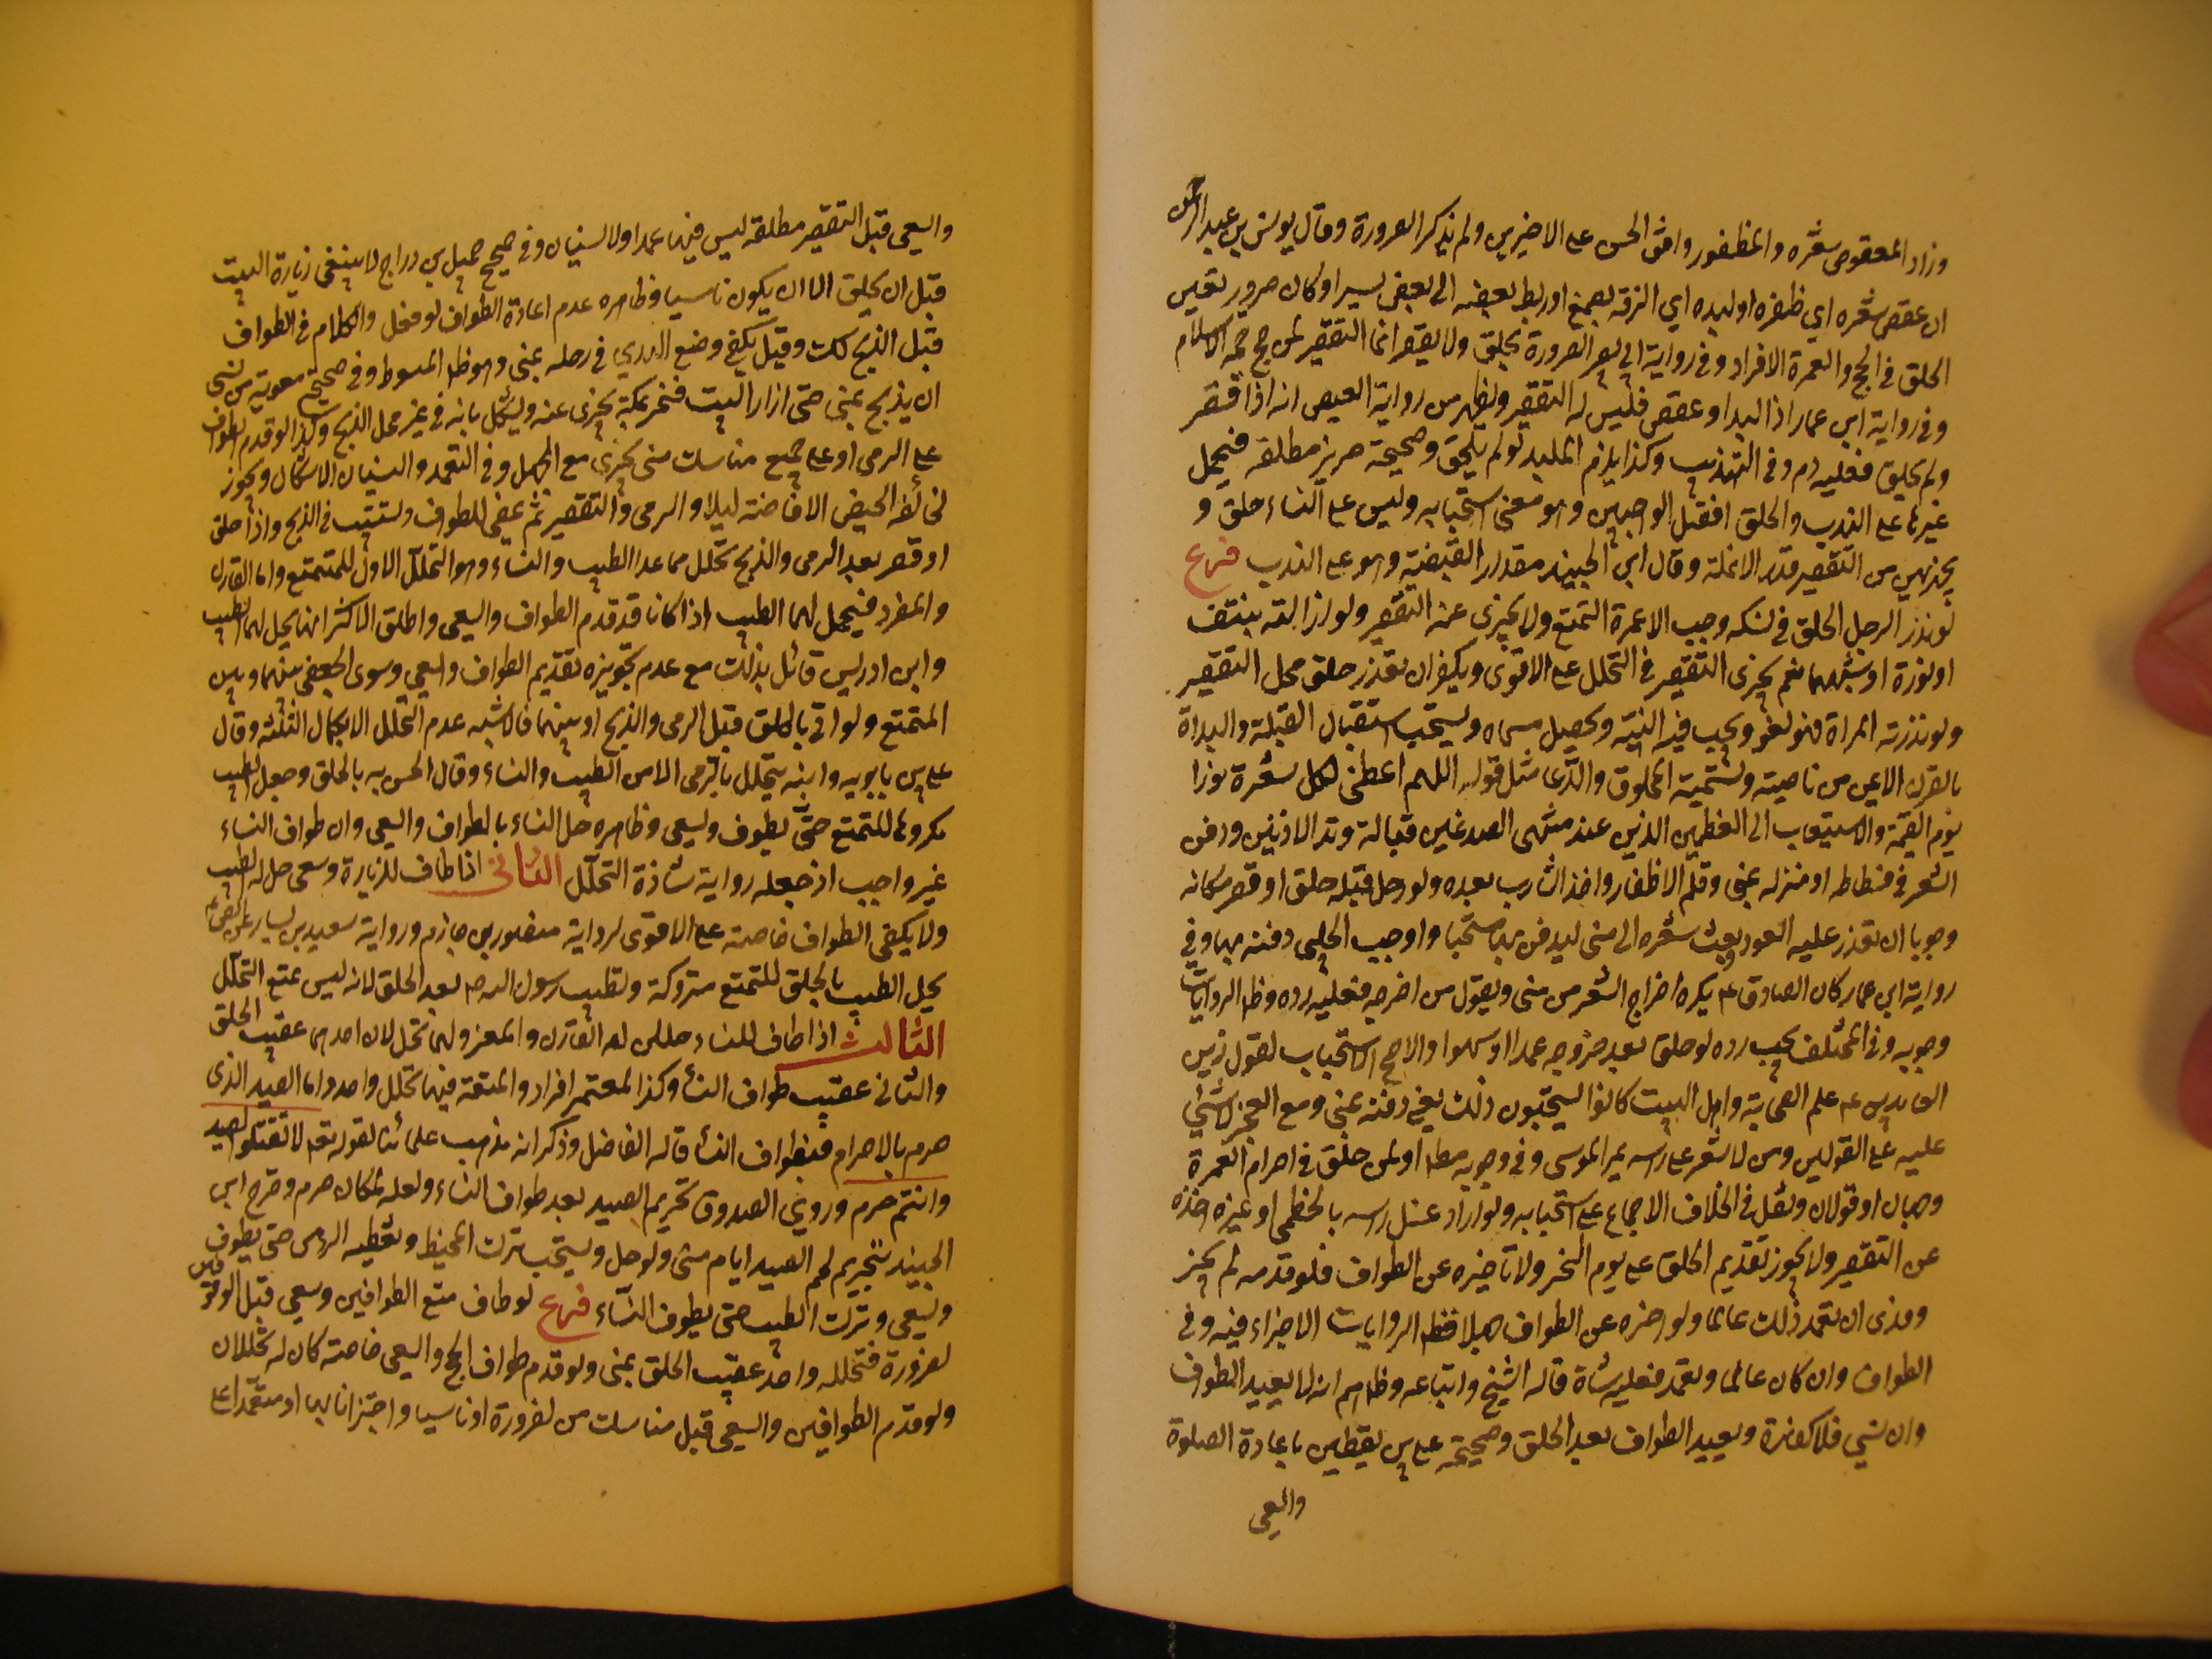 وزاد المعقوص شعره والمظفور وافق الحسن على الاخيرين ولم يذكر الصرورة وقال يونس بن عبد الرحمن
ان عقص شعره اي ظفره او لبده اي الزقه بصمغ او ربط بعضه الى بعض بسير او كان صرورة تعين
الحلق في الحج والعمرة الافراد وفي رواية ابي بصير الصرورة يحلق ولا يقصر انما التقصير لمن حج حجة الاسلام
وفي رواية ابن عمار اذا لبد او عقص فليس له التقصير ويظهر من رواية العيص انه اذا قصر
ولم يحلق فعليه دم وفي التهذيب وكذا يلزم الملبد لو لم يحلق وصحيحة حريز مطلقه فيحمل
غيرها على الندب والحلق افضل الواجبين وهو معنى استحبابه وليس على النساء حلق و
يجزيهن من التقصير قدر الانملة وقال ابن الجنيد مقدار القبضة وهو على الندب فرع
لو نذر الرجل الحلق في نسكه وجب الا عمرة التمتع ولا يجزى عنه التقصير ولو ازالته بنتف
او نورة او شبههما نعم يجزى التقصير في التحلل على الاقوى ويكفر ان تعذر حلق محل التقصير
ولو نذرته المراة فهو لغو ويجب فيه النية وتحصيل مسماه ويستحب استقبال القبلة والبداة
بالقرن الايمن من ناصيته وتسمية المحلوق والدعا مثل قوله اللهم اعطنى بكل شعرة نورا
يوم القيمة والاستيعاب الى العظمين الذين عند منتهى الصدغين قبالة وتد الاذنين ودفن
الشعر في فسطاطه او منزله بمنى وقلم الاظفار واخذ الشارب بعده ولو رحل قبله حلق او قصر مكانه
وجوبا ان تعذر عليه العود وبعث شعره الى منى ليدفن بها مستحبا واوجب الحلبى دفنه بها وفي
رواية ابن عمار كان الصادق ع يكره اخراج الشعر من منى ويقول من اخرجه فعليه رده وظ الروايات
وجوبه وفي المختلف يجب رده لو حلق بعد خروجه عمدا او سهوا والاصح الاستحباب لقول زين
العابدين ع علم الصحابة واهل البيت كانوا يستحبون ذلك يعنى دفنه بمنى ومع العجز لا شئ
عليه على القولين ومن لا شعر على راسه يمر الموسى وفي وجوبه مطا او لمن حلق في احرام العمرة
وجهان او قولان ونقل في الخلاف الاجماع على استحبابه ولو اراد غسل راسه بالخطمى او غيره اخره
عن التقصير ولا يجوز تقديم الحلق على يوم النحر ولا تاخيره عن الطواف فلو قدمه لم يجز
وفدى ان تعمد ذلك عالما ولو اخره عن الطواف جهلا فظ الروايات الاجزاء فيه وفي
الطواف وان كان عالما وتعمد فعليه شاة قاله الشيخ واتباعه وظاهرهم انه لا يعيد الطواف
وان نسي فلا كفارة ويعيد الطواف بعد الحلق وصحيحة على بن يقطين باعادة الصلوة
والسعى
والسعى قبل التقصير مطلقه ليس فيها عمدا ولا نسيان وفي صحيح جميل بن دراج لا ينبغي زيارة البيت
قبل ان يحلق الا ان يكون ناسيا وظاهره عدم اعادة الطواف لو فعل والكلام في الطواف
قبل الذبح كك وقيل يكفي وضع الهدي في رحله بمنى وهو ظ المبسوط وفي صحيحة معوية من نسى
ان يذبح بمنى حتى زار البيت فنحر بمكة يجزى عنه ويشكل بانه في غير محل الذبح وكذا لو قدم الطواف
على الرمى او على جميع مناسك منى يجزى مع الجهل وفي التعمد والنسيان الاشكال ويجوز
لخائفة الحيض الافاضة ليلا والرمى والتقصير ثم تمضى للطواف وتستنيب في الذبح واذا حلق
او قصر بعد الرمى والذبح تحلل مما عدا الطيب والنساء وهو التحلل الاول للمتمتع واما القارن
والمفرد فيحل لهما الطيب اذا كانا قد قدما الطواف والسعى واطلق الاكثر انه يحل لهما الطيب
وابن ادريس قائل بذلك مع عدم تجويزه تقديم الطواف والسعى وسوى الجعفى بينهما وبين
المتمتع ولو اتى بالحلق قبل الرمى والذبح او بينهما فالاشبه عدم التحلل الا بكمال الثلثة وقال
على بن بابويه وابنه يتحلل بالرمى الا من الطيب والنساء وقال الحسن به بالحلق وجعل الطيب
مكروها للمتمتع حتى يطوف ويسعى وظاهره حل النساء بالطواف والسعى وان طواف النساء
غير واجب اذ جعله رواية شاذة التحلل الثانى اذا طاف للزيارة وسعى حل له الطيب
ولا يكفى الطواف خاصة على الاقوى لرواية منصور بن حازم ورواية سعيد بن يسار عن الصادق ع
يحل الطيب بالحلق للمتمتع متروكة وتطيب رسول الله ص بعد الحلق لانه ليس بمتمتع التحلل
الثالث اذا طاف للنساء حللن له والقارن والمفرد لهما تحللان احدهما عقيب الحلق
والثانى عقيب طواف النساء وكذا المعتمر افراد والمتعة فيها تحلل واحد واما الصيد الذى
حرم بالاحرام فبطواف النساء قاله الفاضل وذكر انه مذهب علمائنا لقوله تع لا تقتلوا الصيد
وانتم حرم وروى الصدوق تحريم الصيد بعد طواف النساء ولعله لمكان حرم وصرح ابن
الجنيد بتحريم لحم الصيد ايام منى ولو حل ويستحب ترك المخيط وتغطيه الراس حتى يطوف
ويسعى وترك الطيب حتى يطوف النساء فرع لو طاف متمتع الطوافين وسعى قبل الوقوفين
لضرورة فتحلله واحد عقيب الحلق بمنى ولو قدم طواف الحج والسعى خاصة كان له تحللان
ولو قدم الطوافين والسعى قبل مناسك من لضرورة او ناسيا واجتزانا بها او متعمدا على